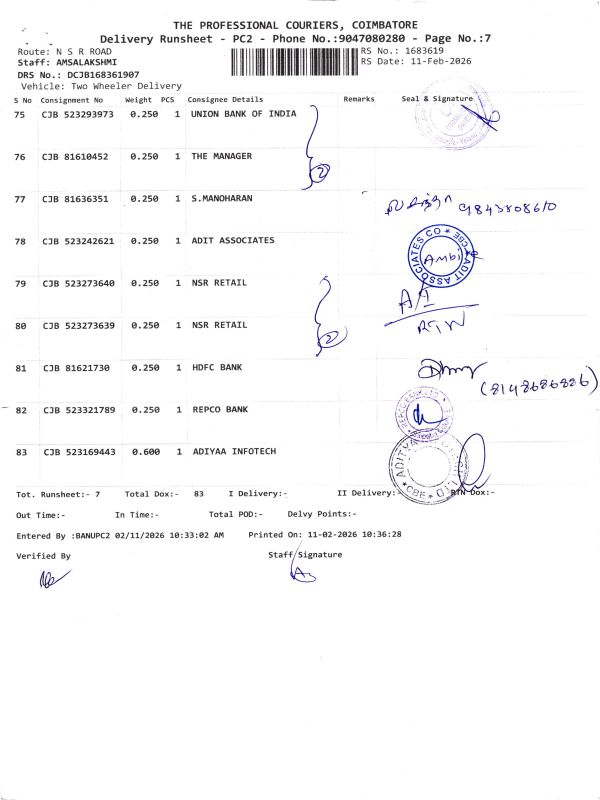 THE PROFESSIONAL COURIERS, COIMBATORE
Delivery Runsheet - PC2 - Phone No.:9047080280 - Page No.:7
Route: N S R ROAD
RS No.: 1683619
Staff: AMSALAKSHMI
RS Date: 11-Feb-2026
DRS No.: DCJB168361907
Vehicle: Two Wheeler Delivery
S No Consignment No Weight PCS Consignee Details Remarks Seal & Signature
75 CJB 523293973 0.250 1 UNION BANK OF INDIA
76 CJB 81610452 0.250 1 THE MANAGER
2
77 CJB 81636351 0.250 1 S.MANOHARAN
9843808610
78 CJB 523242621 0.250 1 ADIT ASSOCIATES
ADIT ASSOCIATES CO * CBE *
Ambi
79 CJB 523273640 0.250 1 NSR RETAIL
80 CJB 523273639 0.250 1 NSR RETAIL
2
81 CJB 81621730 0.250 1 HDFC BANK
(8148686886)
82 CJB 523321789 0.250 1 REPCO BANK
83 CJB 523169443 0.600 1 ADIYAA INFOTECH
Tot. Runsheet:- 7 Total Dox:- 83 I Delivery:- II Delivery:- RTN Dox:-
Out Time:- In Time:- Total POD:- Delvy Points:-
Entered By :BANUPC2 02/11/2026 10:33:02 AM Printed On: 11-02-2026 10:36:28
Verified By Staff Signature